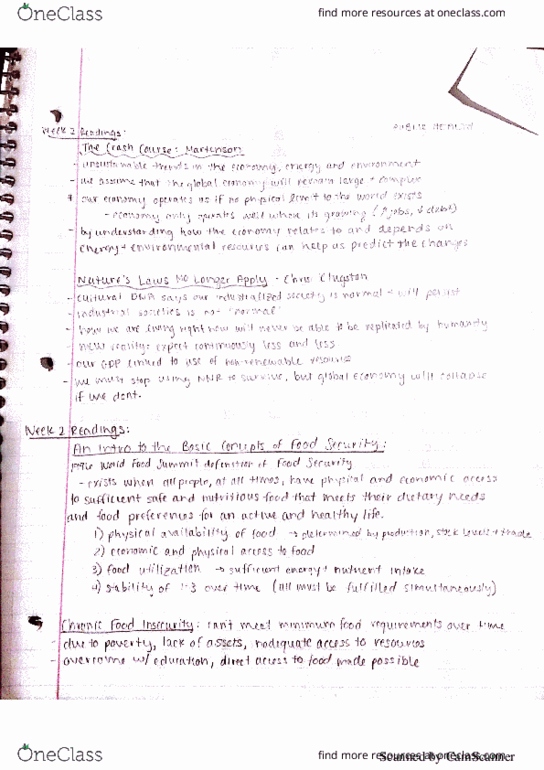 OneClass
find more resources at oneclass.com
Week 2 Readings:
PUBLIC HEALTH
The Crash Course: Martenson
- unsustainable trends in the economy, energy and environment
- we assume that the global economy will remain large + complex
our economy operates as if no physical limit to the world exists
- economy only operates well when its growing (↑ jobs, ↓ debt)
- by understanding how the economy relates to and depends on
energy + environmental resources can help us predict the changes
Nature's Laws No Longer Apply - Chris Clugston
- cultural DNA says our industrialized society is normal + will persist
- industrial societies is not "normal"
- how we are living right now will never be able to be replicated by humanity
- new reality: expect continuously less and less
- our GDP linked to use of non-renewable resources
- we must stop using NNR to survive, but global economy will collapse
if we dont.
Week 2 Readings:
An Intro to the Basic Concepts of Food Security:
World Food Summit definition of Food Security
- exists when all people, at all times, have physical and economic access
to sufficient safe and nutritious food that meets their dietary needs
and food preferences for an active and healthy life.
1) physical availability of food → determined by production, stock levels + trade
2) economic and physical access to food
3) food utilization → sufficient energy + nutrient intake
4) stability of 1-3 over time (all must be fulfilled simultaneously)
Chronic Food Insecurity: can't meet minimum food requirements over time
- due to poverty, lack of assets, inadequate access to resources
- overcome w/ education, direct access to food made possible
OneClass
find more resources at oneclass.com
Scanned by CamScanner